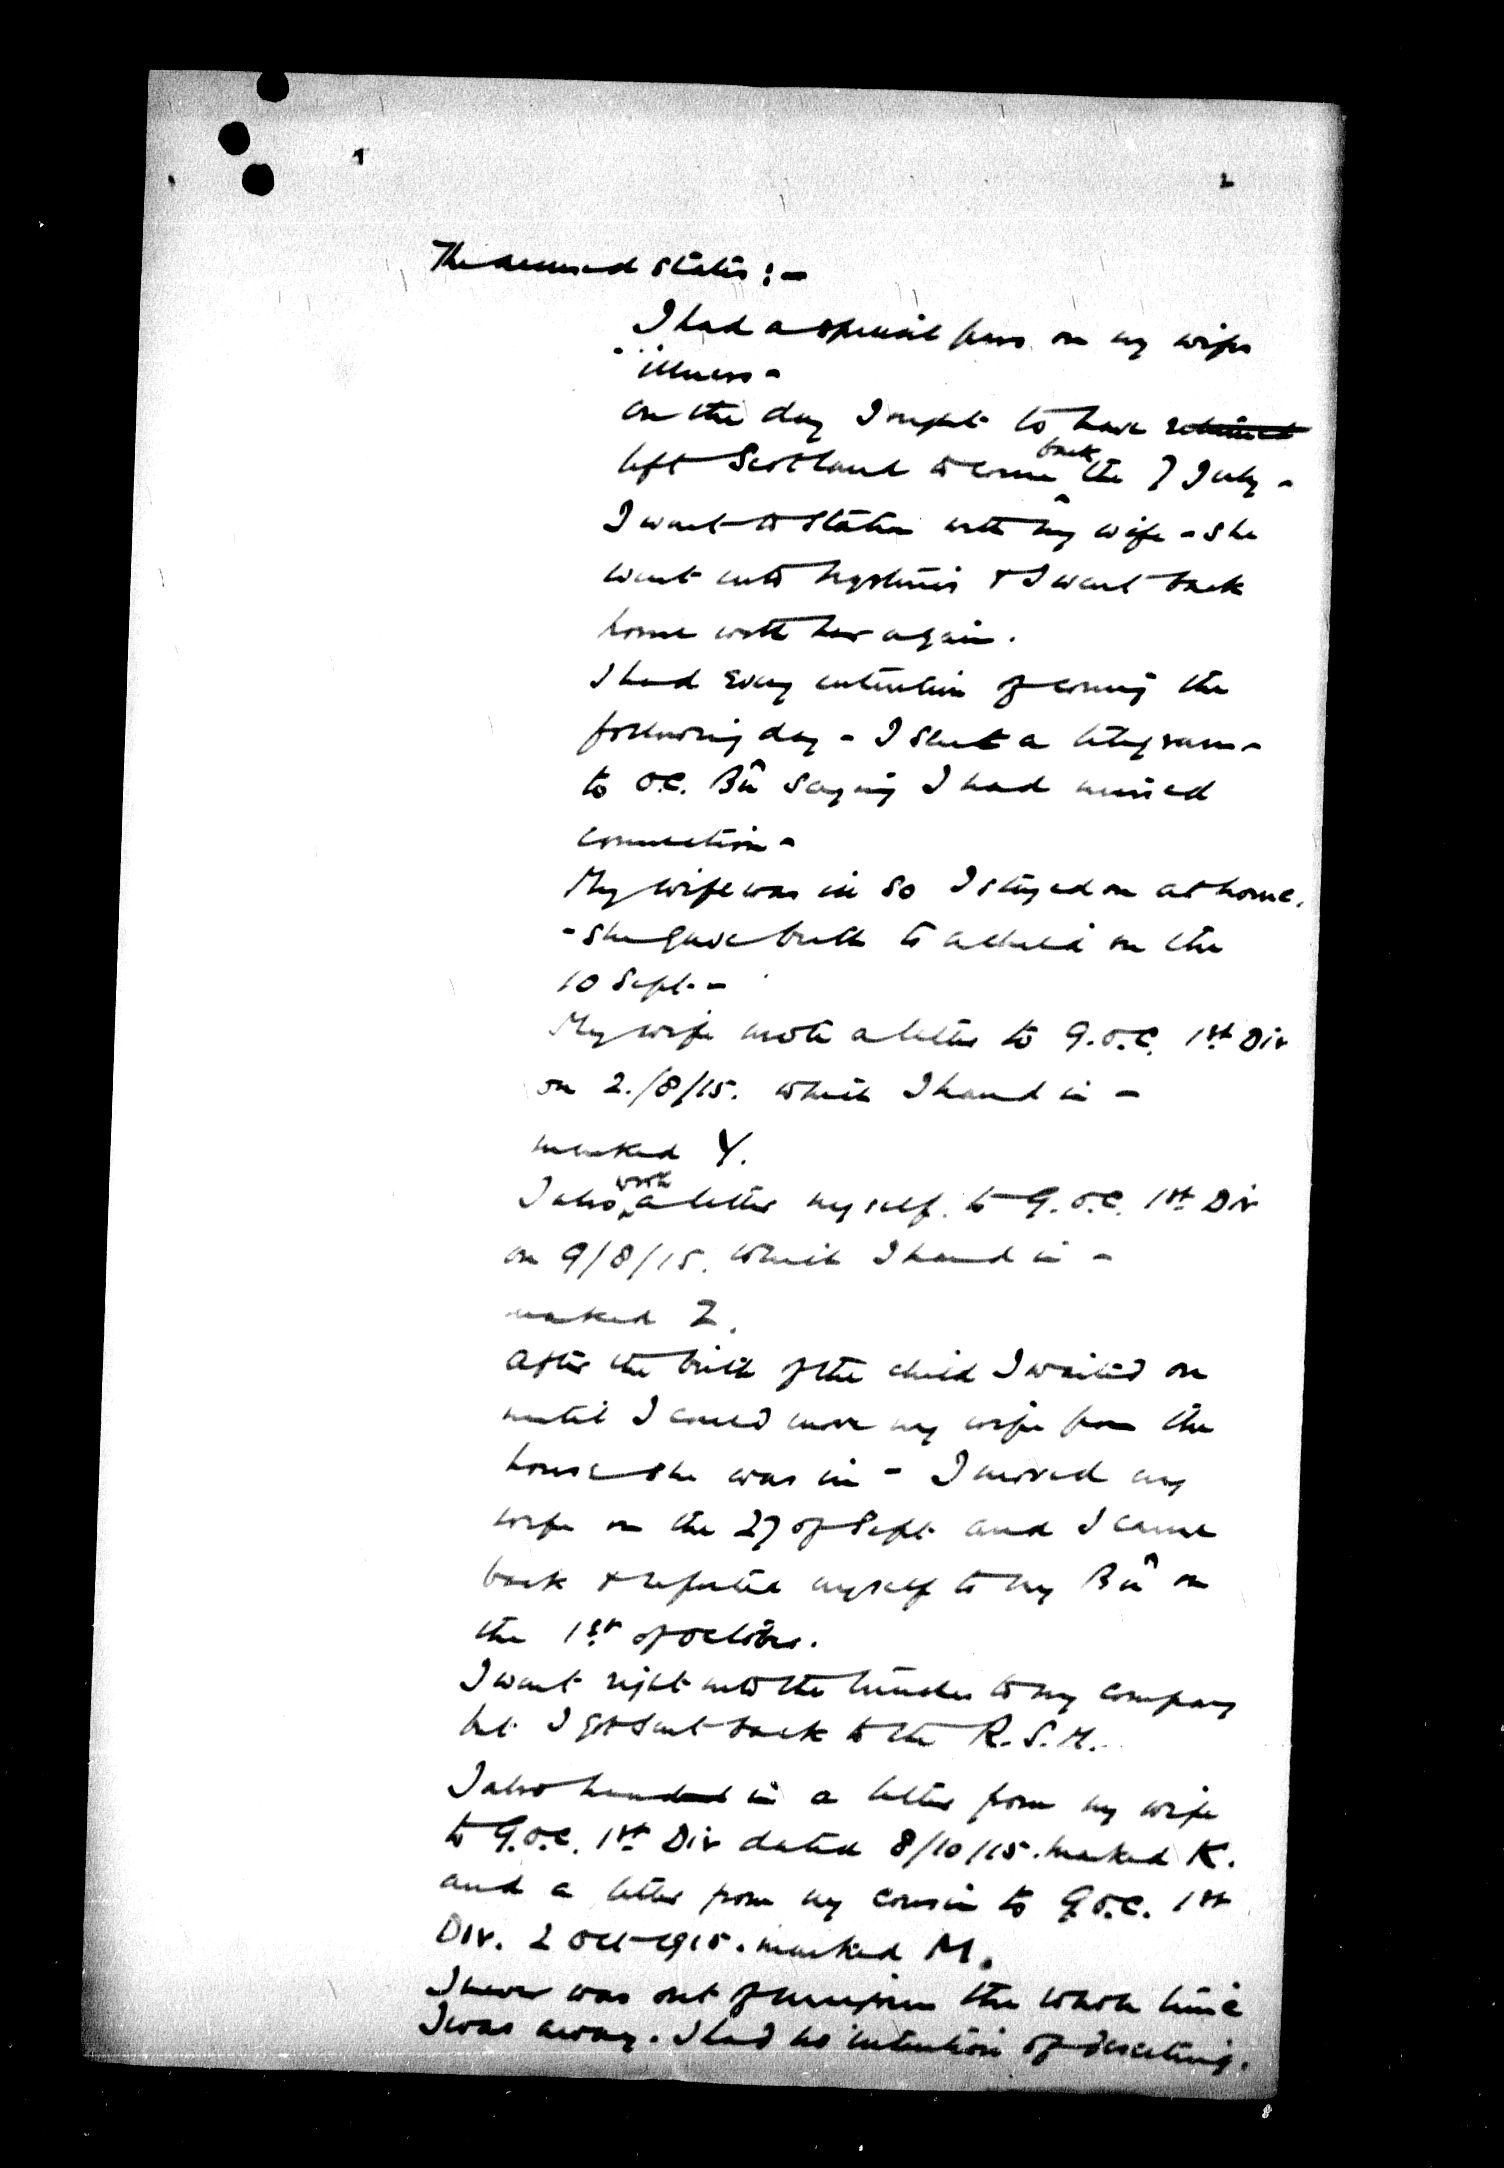 2
The accused states :-
I had a special pass on my wifes
illness -
on the day I ought to have returned
left Scotland to come back the 7 July -
I went to station with my wife - she
went into hysterics & I went back
home with her again.
I had every intention of coming the
following day - I sent a telegram -
to O.C. Bn saying I had missed
connection -
My wife was ill so I stayed on at home.
- she gave birth to a child on the
10 Sept. -
My wife wrote a letter to G.O.C. 1st Div
on 2./8/15. which I hand in -
marked Y.
I also wrote a letter myself. to G.O.C. 1st Div
on 9/8/15. which I hand in -
marked Z.
After the birth of the child I waited on
until I could move my wife from the
house she was in - I moved my
wife on the 27 of Sept. and I came
back & reported myself to my Bn on
the 1st of October.
I went right into the trenches to my company
but I got sent back to the R.S.M.
I also handed in a letter from my wife
to G.O.C. 1st Div dated 8/10/15. marked K.
and a letter from my cousin to G.O.C. 1st
Div. 2 Oct 1915. marked M.
I never was out of uniform the whole time
I was away. I had no intention of deserting.